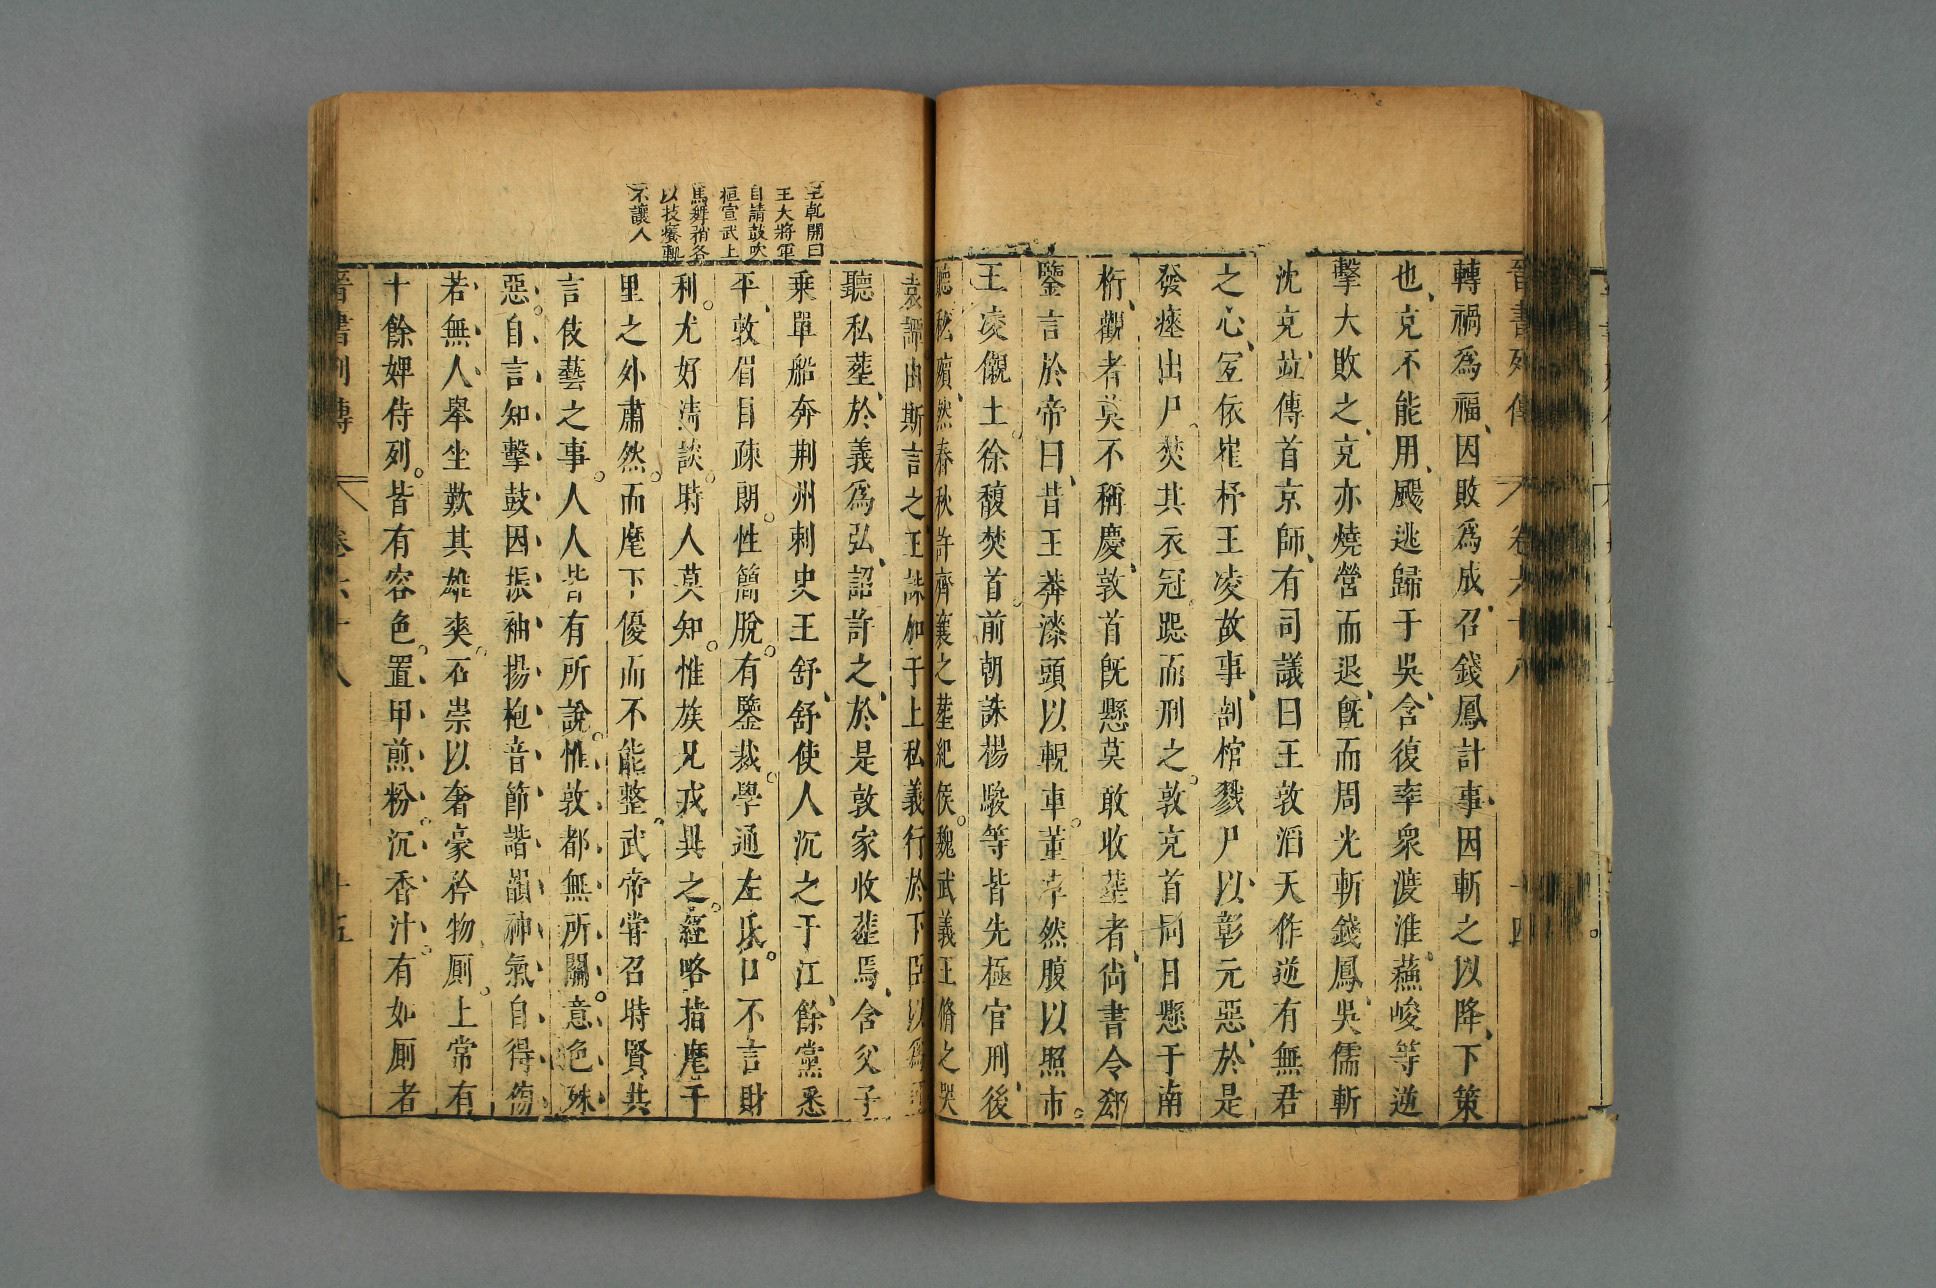 晉書列傳 卷六十八 十四
轉禍爲福因敗爲成召錢鳳計事因斬之以降下策
也克不能用颺逃歸于吳含復率衆渡淮蘓峻等逆
擊大敗之克亦燒營而退旣而周光斬錢鳳吳儒斬
沈克竝傳首京師有司議曰王敦滔天作逆有無君
之心宜依崔杼王凌故事剖棺戮尸以彰元惡於是
發瘞出尸焚其衣冠跽而刑之敦克首同日懸于南
桁觀者莫不稱慶敦首旣懸莫敢收葬者尚書令郄
鑒言於帝曰昔王莽漆頭以輗車董卓然腹以照市
王凌儭土徐馥焚首前朝誅楊駿等皆先極官刑後
聽私殯然春秋許齊襄之葬紀侯魏武義王脩之哭
袁譚由斯言之王誅加于上私義行於下臣以爲可
聽私葬於義爲弘詔許之於是敦家收葬焉含父子
乗單船奔荆州刺史王舒舒使人沉之于江餘黨悉
平敦眉目疎朗性簡脫有鑒裁學通左氏口不言財
利尤好清談時人莫知惟族兄戎異之經略指麾千
里之外肅然而麾下優而不能整武帝甞召時賢共
言伎藝之事人人皆有所說惟敦都無所關意色殊
惡自言知擊鼓因振袖揚枹音節諧韻神氣自得傍
若無人舉坐歎其雄爽石崇以奢豪矜物厠上常有
十餘婢侍列皆有容色置甲煎粉沉香汁有如厠者
晉書列傳 卷六十八 十五
王乾開曰
王大將軍
自請鼓吹
桓宣武上
馬舞矟各
以技癢輒
不讓人